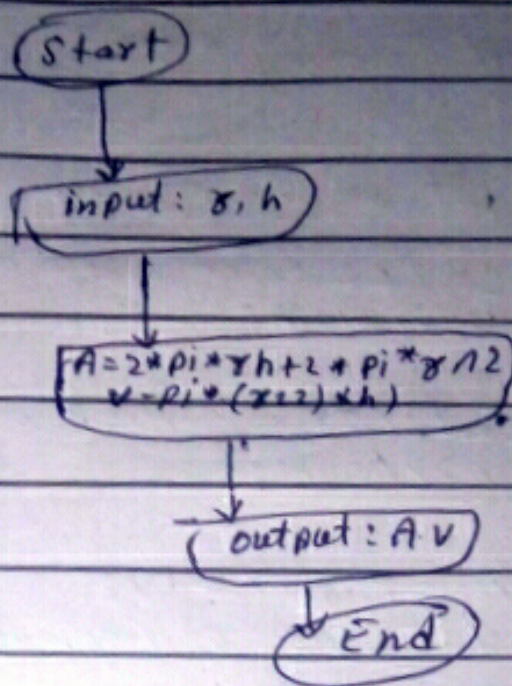 Start
input: r, h
A=2*pi*rh+2*pi*r^2
v=pi*(r^2)*h)
output: A.v
End